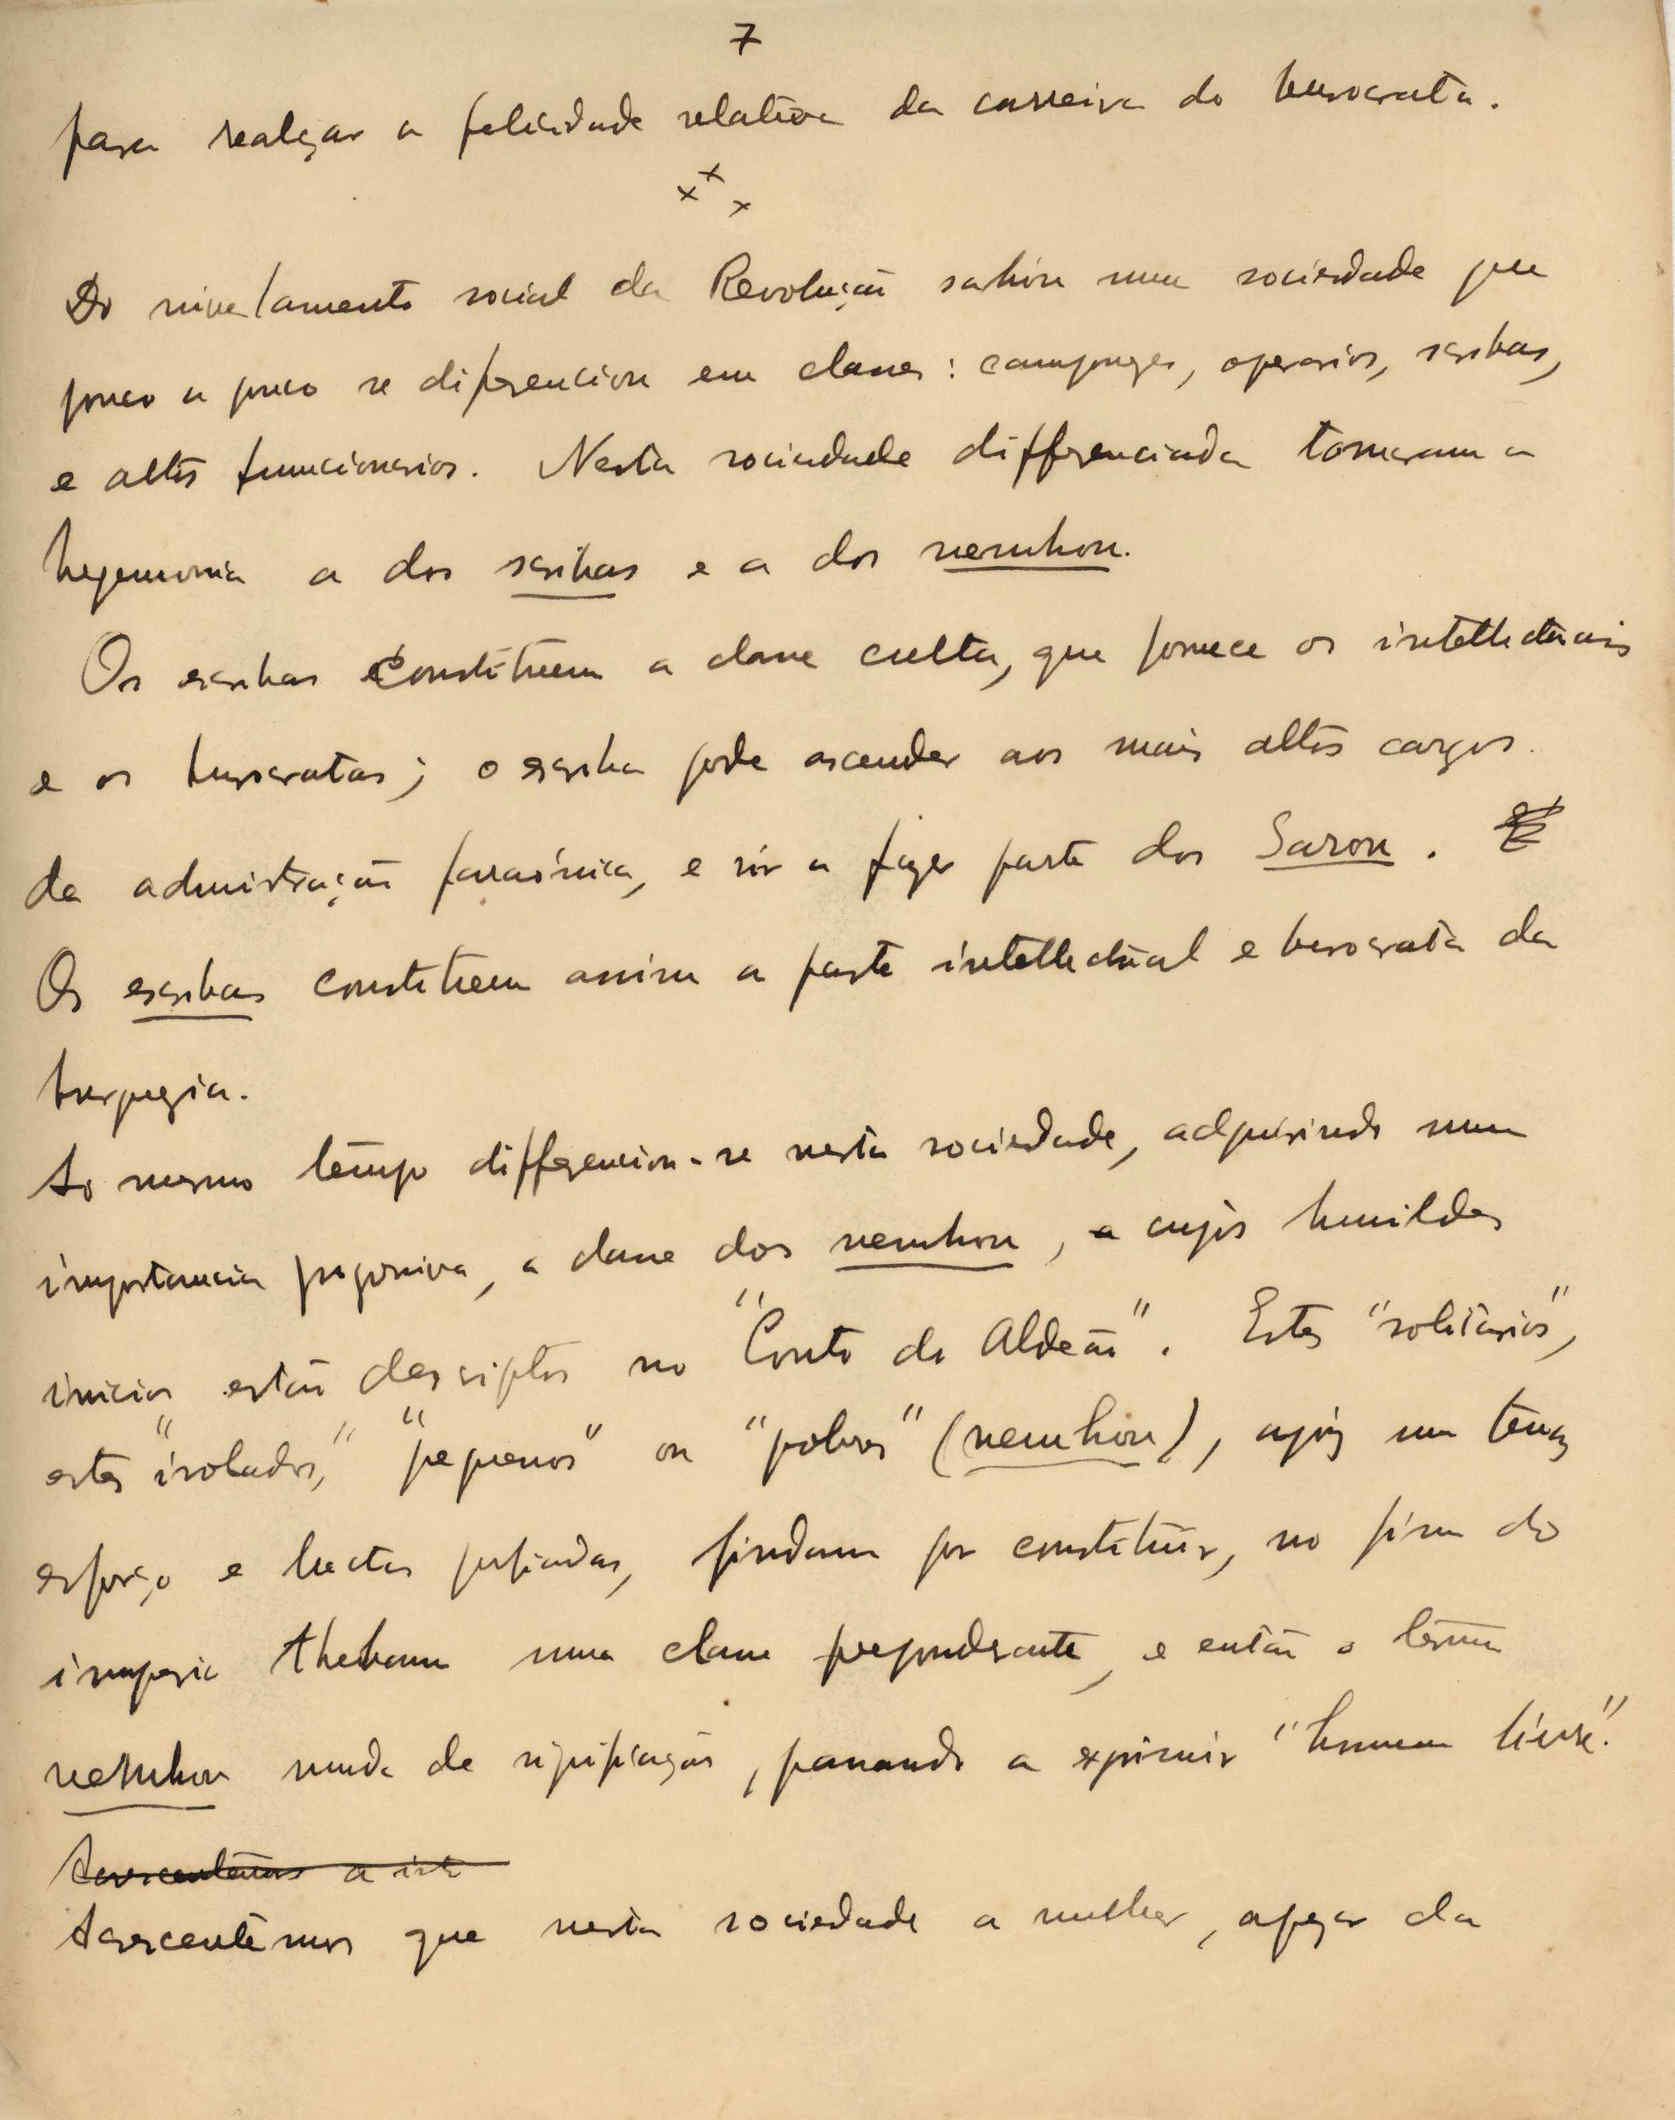 7
para realçar a felicidade relativa da carreira do burocrata.
x x x
Do nivelamento social da Revolução sahiu uma sociedade que
pouco a pouco se diferenciou em classes: camponezes, operarios, scribas,
e altos funccionarios. Nesta sociedade differenciada tomaram a
hegemonia a dos scribas e a dos nemhou.
Os escribas constituem a classe culta, que fornece os intellectuais
e os burocratas; o escriba pode ascender aos mais altos cargos
da admistração faraónica, e vir a fazer parte dos Sarou.
Os escribas constituem assim a parte intellectual e burocrata da
burguezia.
Ao mesmo tempo differenciou-se nesta sociedade, adquirindo uma
importancia progressiva, a classe dos nemhou, a cujos humildes
inicios estão descriptos no "Conto do Aldeão". Estes "solitarios",
estes "isolados," "pequenos" ou "pobres" (nemhou), após um tenaz
esforço e luctas porfiadas, findam por constituir, no fim do
imperio thebano uma classe preponderante, e então o termo
nemhou muda de significação, passando a exprimir "homem livre".
Acrescentemos a isto
Acrescentemos que nesta sociedade a mulher, apezar da